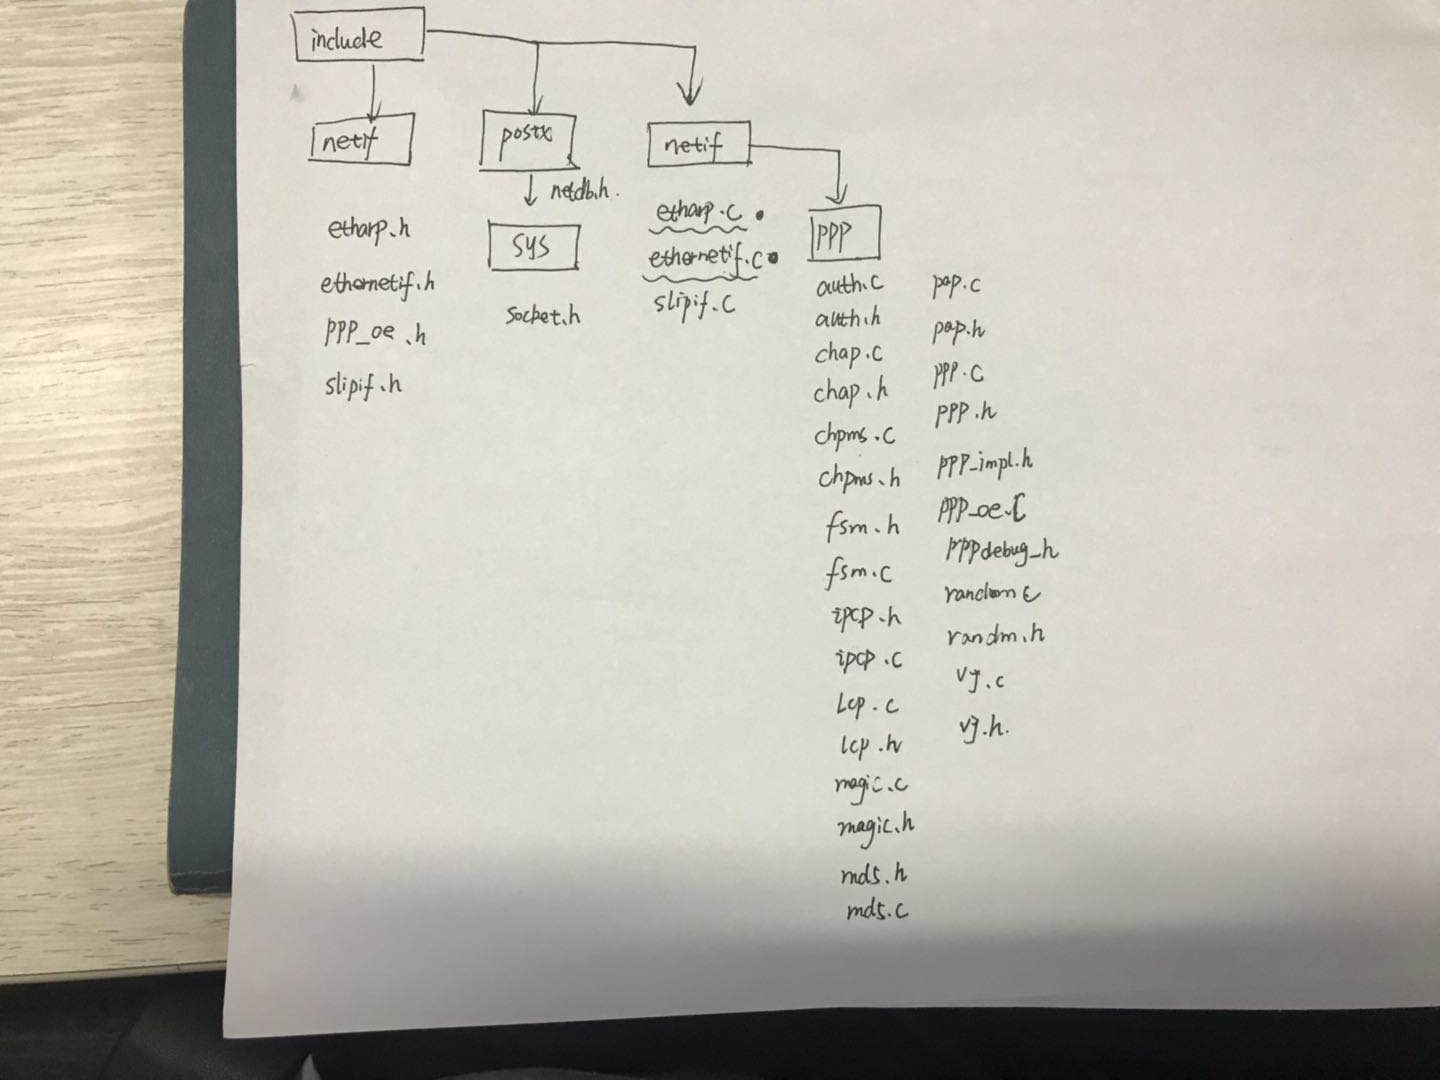 include
netif
etharp.h
ethernetif.h
PPP_oe.h
slipif.h
postx
netdb.h.
sys
socket.h
netif
etharp.c
ethernetif.c
slipif.c
PPP
auth.c
auth.h
chap.c
chap.h
chpms.c
chpms.h
fsm.h
fsm.c
ipcp.h
ipcp.c
Lcp.c
lcp.h
magic.c
magic.h
md5.h
md5.c
pap.c
pap.h
PPP.c
PPP.h
PPP_impl.h
PPP_oe.C
PPPdebug_h
random c
randm.h
vj.c
vj.h.